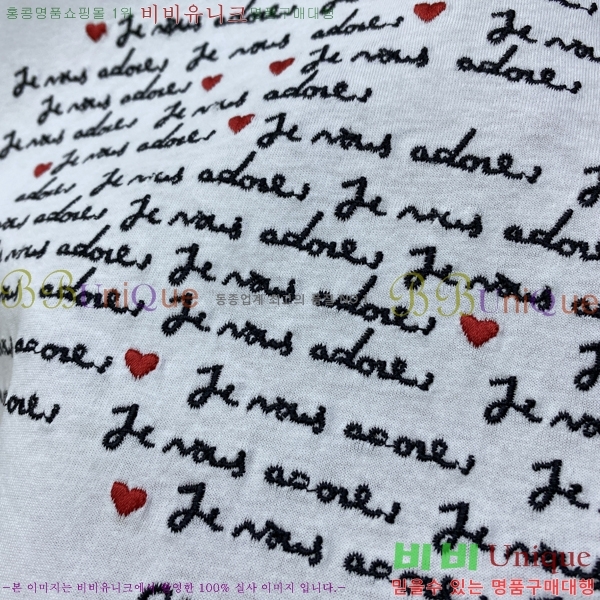 홍콩명품쇼핑몰 1위 비비유니크 명품구매대행
Je vous adore
Je vous adore
Je vous adore Je vous adore
Je vous adore Je vous adore
Je vous adore Je vous adore
Je vous adore Je vous adore
adore Je vous adore Je vous
adore Je vous adore Je vous
vous adore Je vous adore
BBUniQue 동종업계 최고의 품질 BBUniQue
adore Je vous adore
adore Je vous adore
Je vous adore
Je vous adore
비비 Unique
-본 이미지는 비비유니크에서 촬영한 100% 실사 이미지 입니다.-
믿을수 있는 명품구매대행